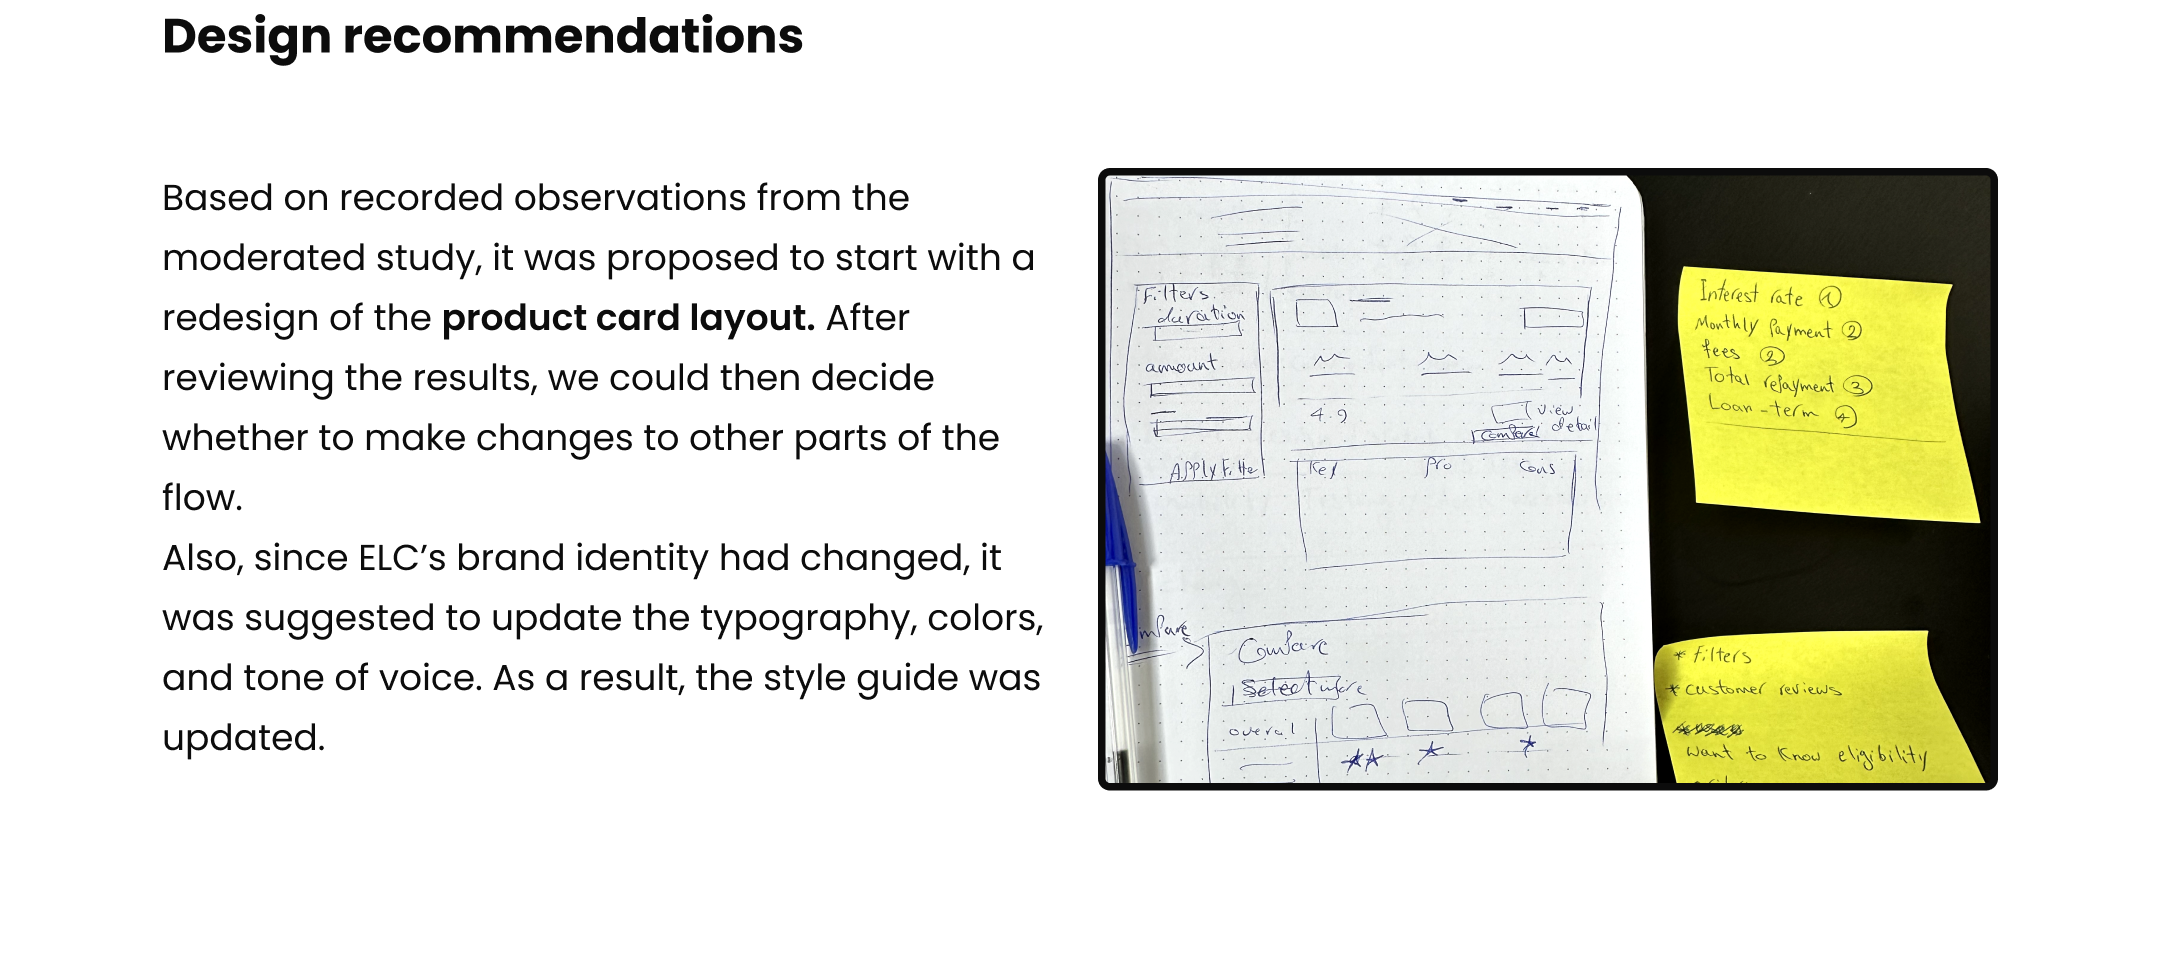 Design recommendations
Based on recorded observations from the
moderated study, it was proposed to start with a
redesign of the product card layout. After
reviewing the results, we could then decide
whether to make changes to other parts of the
flow.
Also, since ELC’s brand identity had changed, it
was suggested to update the typography, colors,
and tone of voice. As a result, the style guide was
updated.
Filters
duration
amount
APPly Filte
4.9
view
detail
Compare
Key Pro Cons
Compare
Select
overal
Interest rate 1
Monthly Payment 2
fees 2
Total repayment 3
Loan-term 4
* Filters
* customer reviews
want to know eligibility